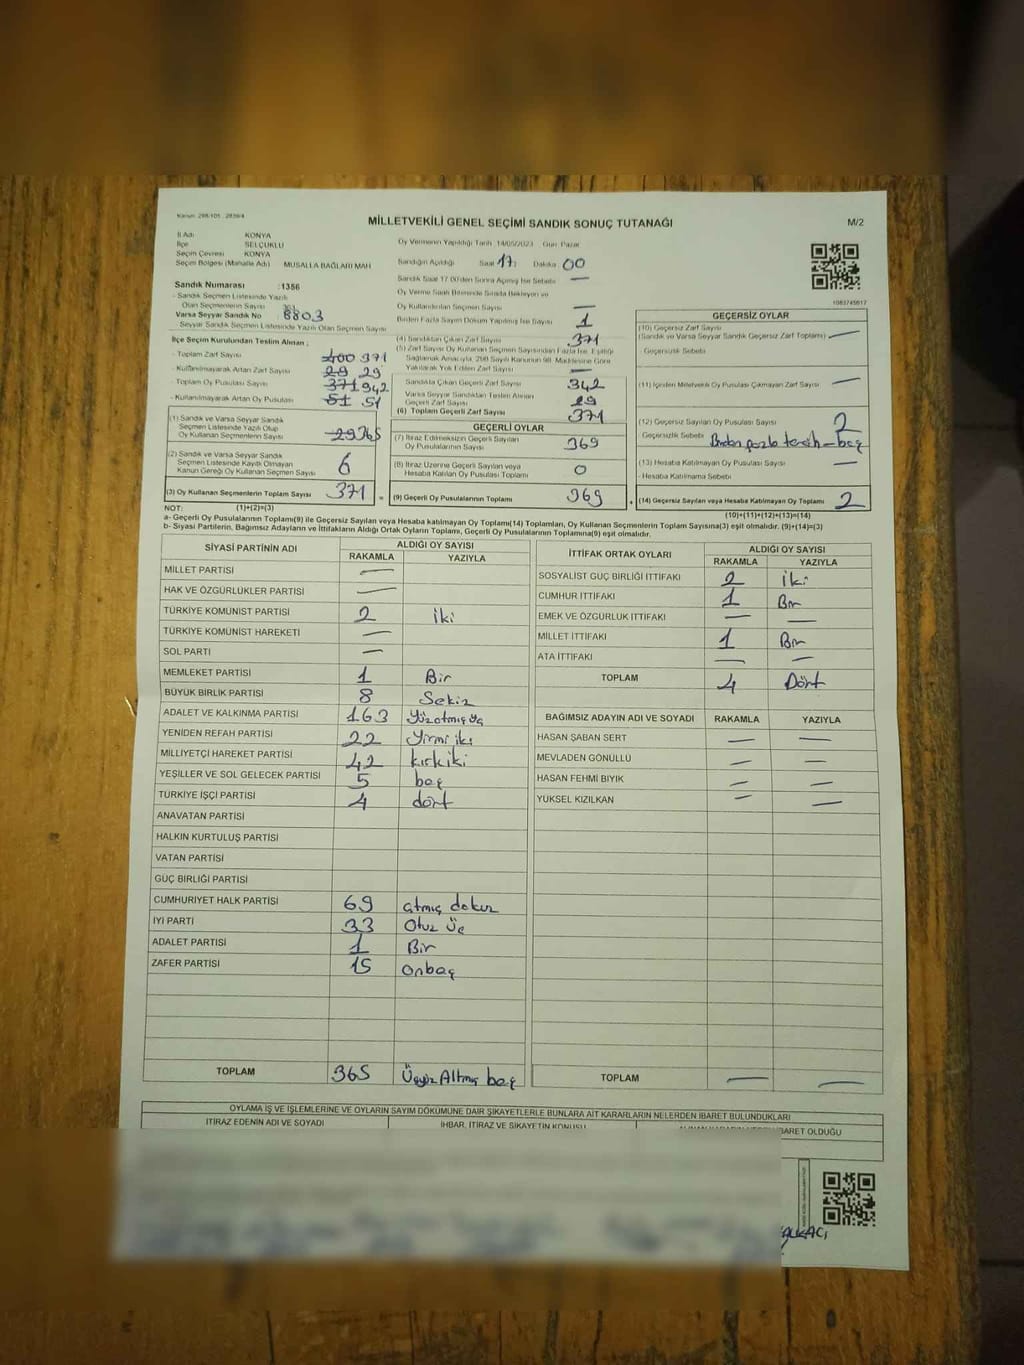 Kanun: 298.105 , 2839/4
MİLLETVEKİLİ GENEL SEÇİMİ SANDIK SONUÇ TUTANAĞI
M/2
İl Adı KONYA
İlçe SELÇUKLU
Seçim Çevresi KONYA
Seçim Bölgesi (Mahalle Adı) MUSALLA BAĞLARI MAH
Oy Vermenin Yapıldığı Tarih 14/05/2023 Gün Pazar
Sandığın Açıldığı Saat 17: Dakika 00
Sandık Saat 17.00'den Sonra Açılmış İse Sebebi —
Oy Verme Saati Bitiminde Sırada Bekleyen ve
Oy Kullandırılan Seçmen Sayısı —
Birden Fazla Sayım Döküm Yapılmış İse Sayısı 1
1083745617
Sandık Numarası :1356
- Sandık Seçmen Listesinde Yazılı
Olan Seçmenlerin Sayısı
Varsa Seyyar Sandık No 8803
Seyyar Sandık Seçmen Listesinde Yazılı Olan Seçmen Sayısı
İlçe Seçim Kurulundan Teslim Alınan ;
- Toplam Zarf Sayısı 400 371
- Kullanılmayarak Artan Zarf Sayısı 29 29
- Toplam Oy Pusulası Sayısı 371 942
- Kullanılmayarak Artan Oy Pusulası 51 51
(1) Sandık ve Varsa Seyyar Sandık
Seçmen Listesinde Yazılı Olup
Oy Kullanan Seçmenlerin Sayısı
(2) Sandık ve Varsa Seyyar Sandık
Seçmen Listesinde Kayıtlı Olmayan
Kanun Gereği Oy Kullanan Seçmen Sayısı 6
(3) Oy Kullanan Seçmenlerin Toplam Sayısı 371 =
(4) Sandıktan Çıkan Zarf Sayısı 371
(5) Zarf Sayısı Oy Kullanan Seçmen Sayısından Fazla İse, Eşitliği
Sağlamak Amacıyla, 298 Sayılı Kanunun 98. Maddesine Göre
Yakılarak Yok Edilen Zarf Sayısı —
Sandıkta Çıkan Geçerli Zarf Sayısı 342
Varsa Seyyar Sandıktan Teslim Alınan
Geçerli Zarf Sayısı 29
(6) Toplam Geçerli Zarf Sayısı 371
GEÇERLİ OYLAR
(7) İtiraz Edilmeksizin Geçerli Sayılan
Oy Pusulalarının Sayısı 369
(8) İtiraz Üzerine Geçerli Sayılan veya
Hesaba Katılan Oy Pusulası Toplamı 0
(9) Geçerli Oy Pusulalarının Toplamı 369 +
GEÇERSİZ OYLAR
(10) Geçersiz Zarf Sayısı
(Sandık ve Varsa Seyyar Sandık Geçersiz Zarf Toplamı) —
Geçersizlik Sebebi
(11) İçinden Milletvekili Oy Pusulası Çıkmayan Zarf Sayısı —
(12) Geçersiz Sayılan Oy Pusulası Sayısı 2
Geçersizlik Sebebi Birden fazla tercih – beş
(13) Hesaba Katılmayan Oy Pusulası Sayısı —
- Hesaba Katılmama Sebebi
(14) Geçersiz Sayılan veya Hesaba Katılmayan Oy Toplamı 2
NOT: (1)+(2)=(3)
(10)+(11)+(12)+(13)=(14)
a- Geçerli Oy Pusulalarının Toplamı(9) ile Geçersiz Sayılan veya Hesaba katılmayan Oy Toplamı(14) Toplamları, Oy Kullanan Seçmenlerin Toplam Sayısına(3) eşit olmalıdır. (9)+(14)=(3)
b- Siyasi Partilerin, Bağımsız Adayların ve İttifakların Aldığı Ortak Oyların Toplamı, Geçerli Oy Pusulalarının Toplamına(9) eşit olmalıdır.
SİYASİ PARTİNİN ADI ALDIĞI OY SAYISI
RAKAMLA YAZIYLA
MİLLET PARTİSİ —
HAK VE ÖZGÜRLÜKLER PARTİSİ —
TÜRKİYE KOMÜNİST PARTİSİ 2 iki
TÜRKİYE KOMÜNİST HAREKETİ —
SOL PARTİ —
MEMLEKET PARTİSİ 1 Bir
BÜYÜK BİRLİK PARTİSİ 8 Sekiz
ADALET VE KALKINMA PARTİSİ 163 Yüzatmışüç
YENİDEN REFAH PARTİSİ 22 Yirmi iki
MİLLİYETÇİ HAREKET PARTİSİ 42 kırkiki
YEŞİLLER VE SOL GELECEK PARTİSİ 5 beş
TÜRKİYE İŞÇİ PARTİSİ 4 dört
ANAVATAN PARTİSİ
HALKIN KURTULUŞ PARTİSİ
VATAN PARTİSİ
GÜÇ BİRLİĞİ PARTİSİ
CUMHURİYET HALK PARTİSİ 69 atmış dokuz
İYİ PARTİ 33 Otuz Üç
ADALET PARTİSİ 1 Bir
ZAFER PARTİSİ 15 onbeş
TOPLAM 365 Üçyüz Altmış beş
İTTİFAK ORTAK OYLARI ALDIĞI OY SAYISI
RAKAMLA YAZIYLA
SOSYALİST GÜÇ BİRLİĞİ İTTİFAKI 2 İki
CUMHUR İTTİFAKI 1 Bir
EMEK VE ÖZGÜRLÜK İTTİFAKI — —
MİLLET İTTİFAKI 1 Bir
ATA İTTİFAKI — —
TOPLAM 4 Dört
BAĞIMSIZ ADAYIN ADI VE SOYADI RAKAMLA YAZIYLA
HASAN ŞABAN SERT — —
MEVLADEN GÖNÜLLÜ — —
HASAN FEHMİ BIYIK — —
YÜKSEL KIZILKAN — —
TOPLAM — —
OYLAMA İŞ VE İŞLEMLERİNE VE OYLARIN SAYIM DÖKÜMÜNE DAİR ŞİKAYETLERLE BUNLARA AİT KARARLARIN NELERDEN İBARET BULUNDUKLARI
İTİRAZ EDENİN ADI VE SOYADI İHBAR, İTİRAZ VE ŞİKAYETİN KONUSU İBARET OLDUĞU